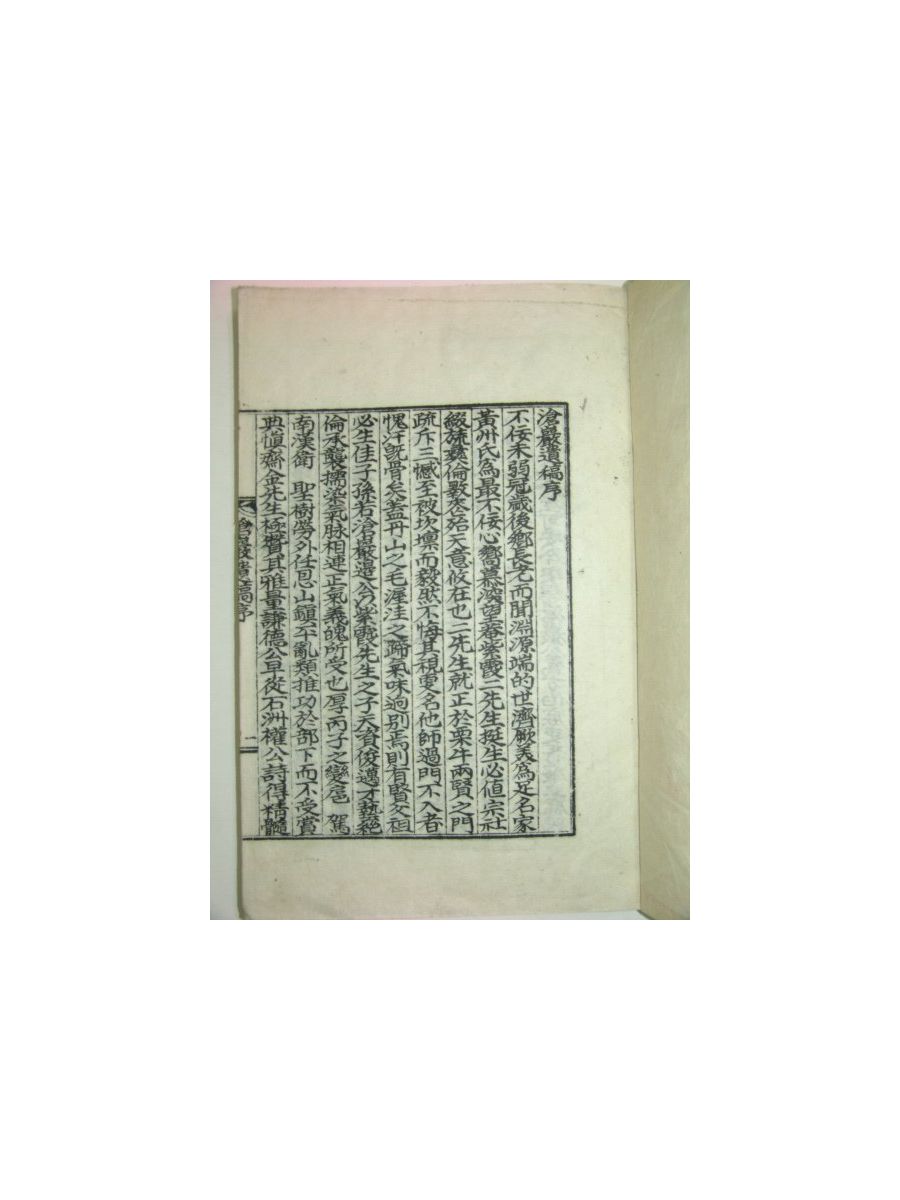 滄巖遺稿序
不佞未弱冠歲後鄉長老而聞淵源端的世濟厥美爲足名家
黃州氏為最不佞心嚮慕深壺菴紫霞二先生挺生必値宗社
綴旒彝倫斁喪殆天意攸在也二先生就正於栗牛兩賢之門
疏斥三憾至被坎壈而毅然不悔其視更名他師過門不入者
愧汗旣骨矣盖丹山之毛渥洼之蹄氣味逈别焉則有賢父祖
必生佳子孫若滄巖邊公以紫霞先生之子天資俊邁才藝絕
倫承襲擩染氣脉相連正氣義魄所受也厚丙子之變扈 駕
南漢衛 聖樹勞外任恩山鎮平亂類推功於部下而不受賞
典愼齋金先生極賛其雅量謙德公且從石洲權公詩得精髓
滄巖遺稿序